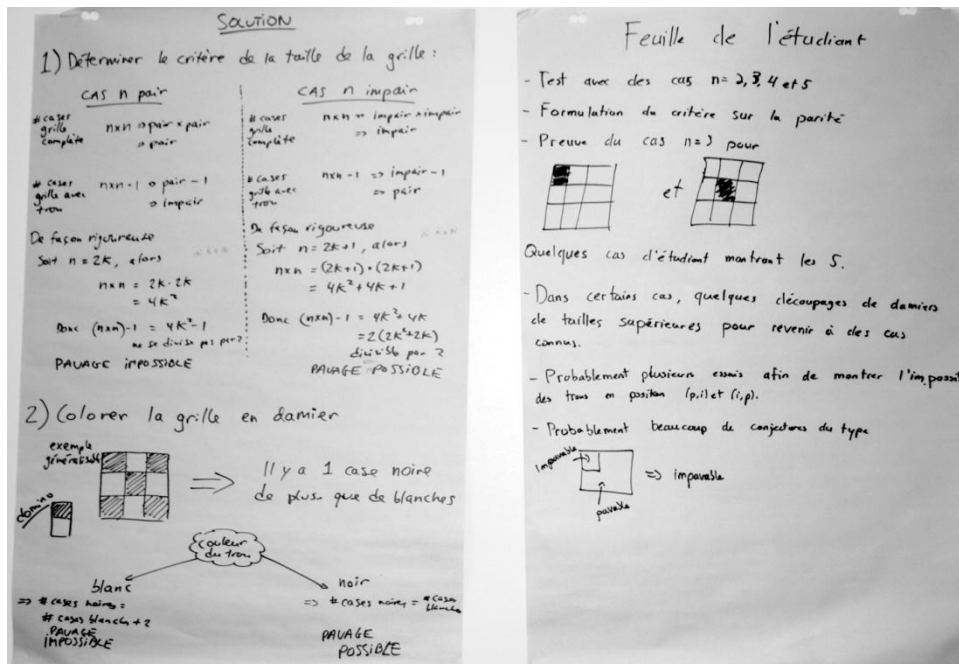 SOLUTION
1) Déterminer le critère de la taille de la grille :
CAS n pair
# cases
grille
complète
n×n => pair × pair
=> pair
# cases
grille avec
trou
n×n - 1 => pair - 1
=> impair
De façon rigoureuse
Soit n = 2k, alors
n×n = 2k · 2k
= 4k²
Donc (n×n) - 1 = 4k² - 1
ne se divise pas par 2
PAVAGE IMPOSSIBLE
CAS n impair
# cases
grille
complète
n×n => impair × impair
=> impair
# cases
grille avec
trou
n×n - 1 => impair - 1
=> pair
De façon rigoureuse
Soit n = 2k+1, alors
n×n = (2k+1) · (2k+1)
= 4k² + 4k + 1
Donc (n×n) - 1 = 4k² + 4k
= 2(2k² + 2k)
divisible par 2
PAVAGE POSSIBLE
2) Colorer la grille en damier
exemple
généralisable
domino
Il y a 1 case noire
de plus que de blanches
couleur
du trou
blanc
=> # cases noires =
# cases blanches + 2
PAVAGE
IMPOSSIBLE
noir
=> # cases noires = # cases
blanches
PAVAGE
POSSIBLE
Feuille de l'étudiant
- Test avec des cas n = 2, 3, 4 et 5
- Formulation du critère sur la parité
- Preuve du cas n = 3 pour
et
Quelques cas d'étudiant montrant les 5.
- Dans certains cas, quelques découpages de damiers
de tailles supérieures pour revenir à des cas
connus.
- Probablement plusieurs essais afin de montrer l'imposs
des trous en position (p,i) et (i,p).
- Probablement beaucoup de conjectures du type
impavable
pavable
=> impavable